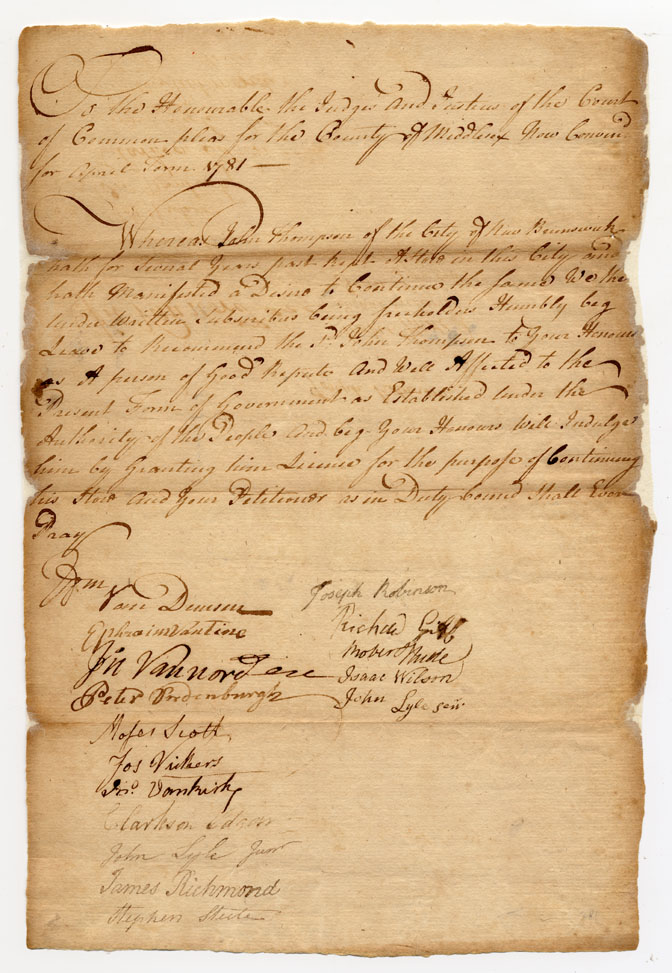 To the Honourable the Judges And Justices of the Court
of Common pleas for the County of Middlesex Now Conven'd
for April Term 1781 —
Whereas John Thompson of the City of New Brunswick
hath for Several Years past Kept A Store in this City and
hath Manifested a Desire to Continue the same We the
under Written Subscribers being freeholders Humbly beg
Leave to Recommend the Sd. John Thompson to Your Honours
as A person of Good Repute And Well Affected to the
Present Form of Government as Established under the
Authority of the People And beg Your Honours will Indulge
him by Granting him Licence for the purpose of Continuing
his Store And Your Petitioners as in Duty bound Shall Ever
Pray
Wm Van Deursen
Ephraim Vantine
Jn Vannordsen
Peter Vredenburgh
Moses Scott
Jos Vickers
Jno. Vankirk
Clarkson Edgar
John Lyle Junr
James Richmond
Stephen
Joseph Robinson
Richd
Robert
Isaac Wilson
John Lyle senr